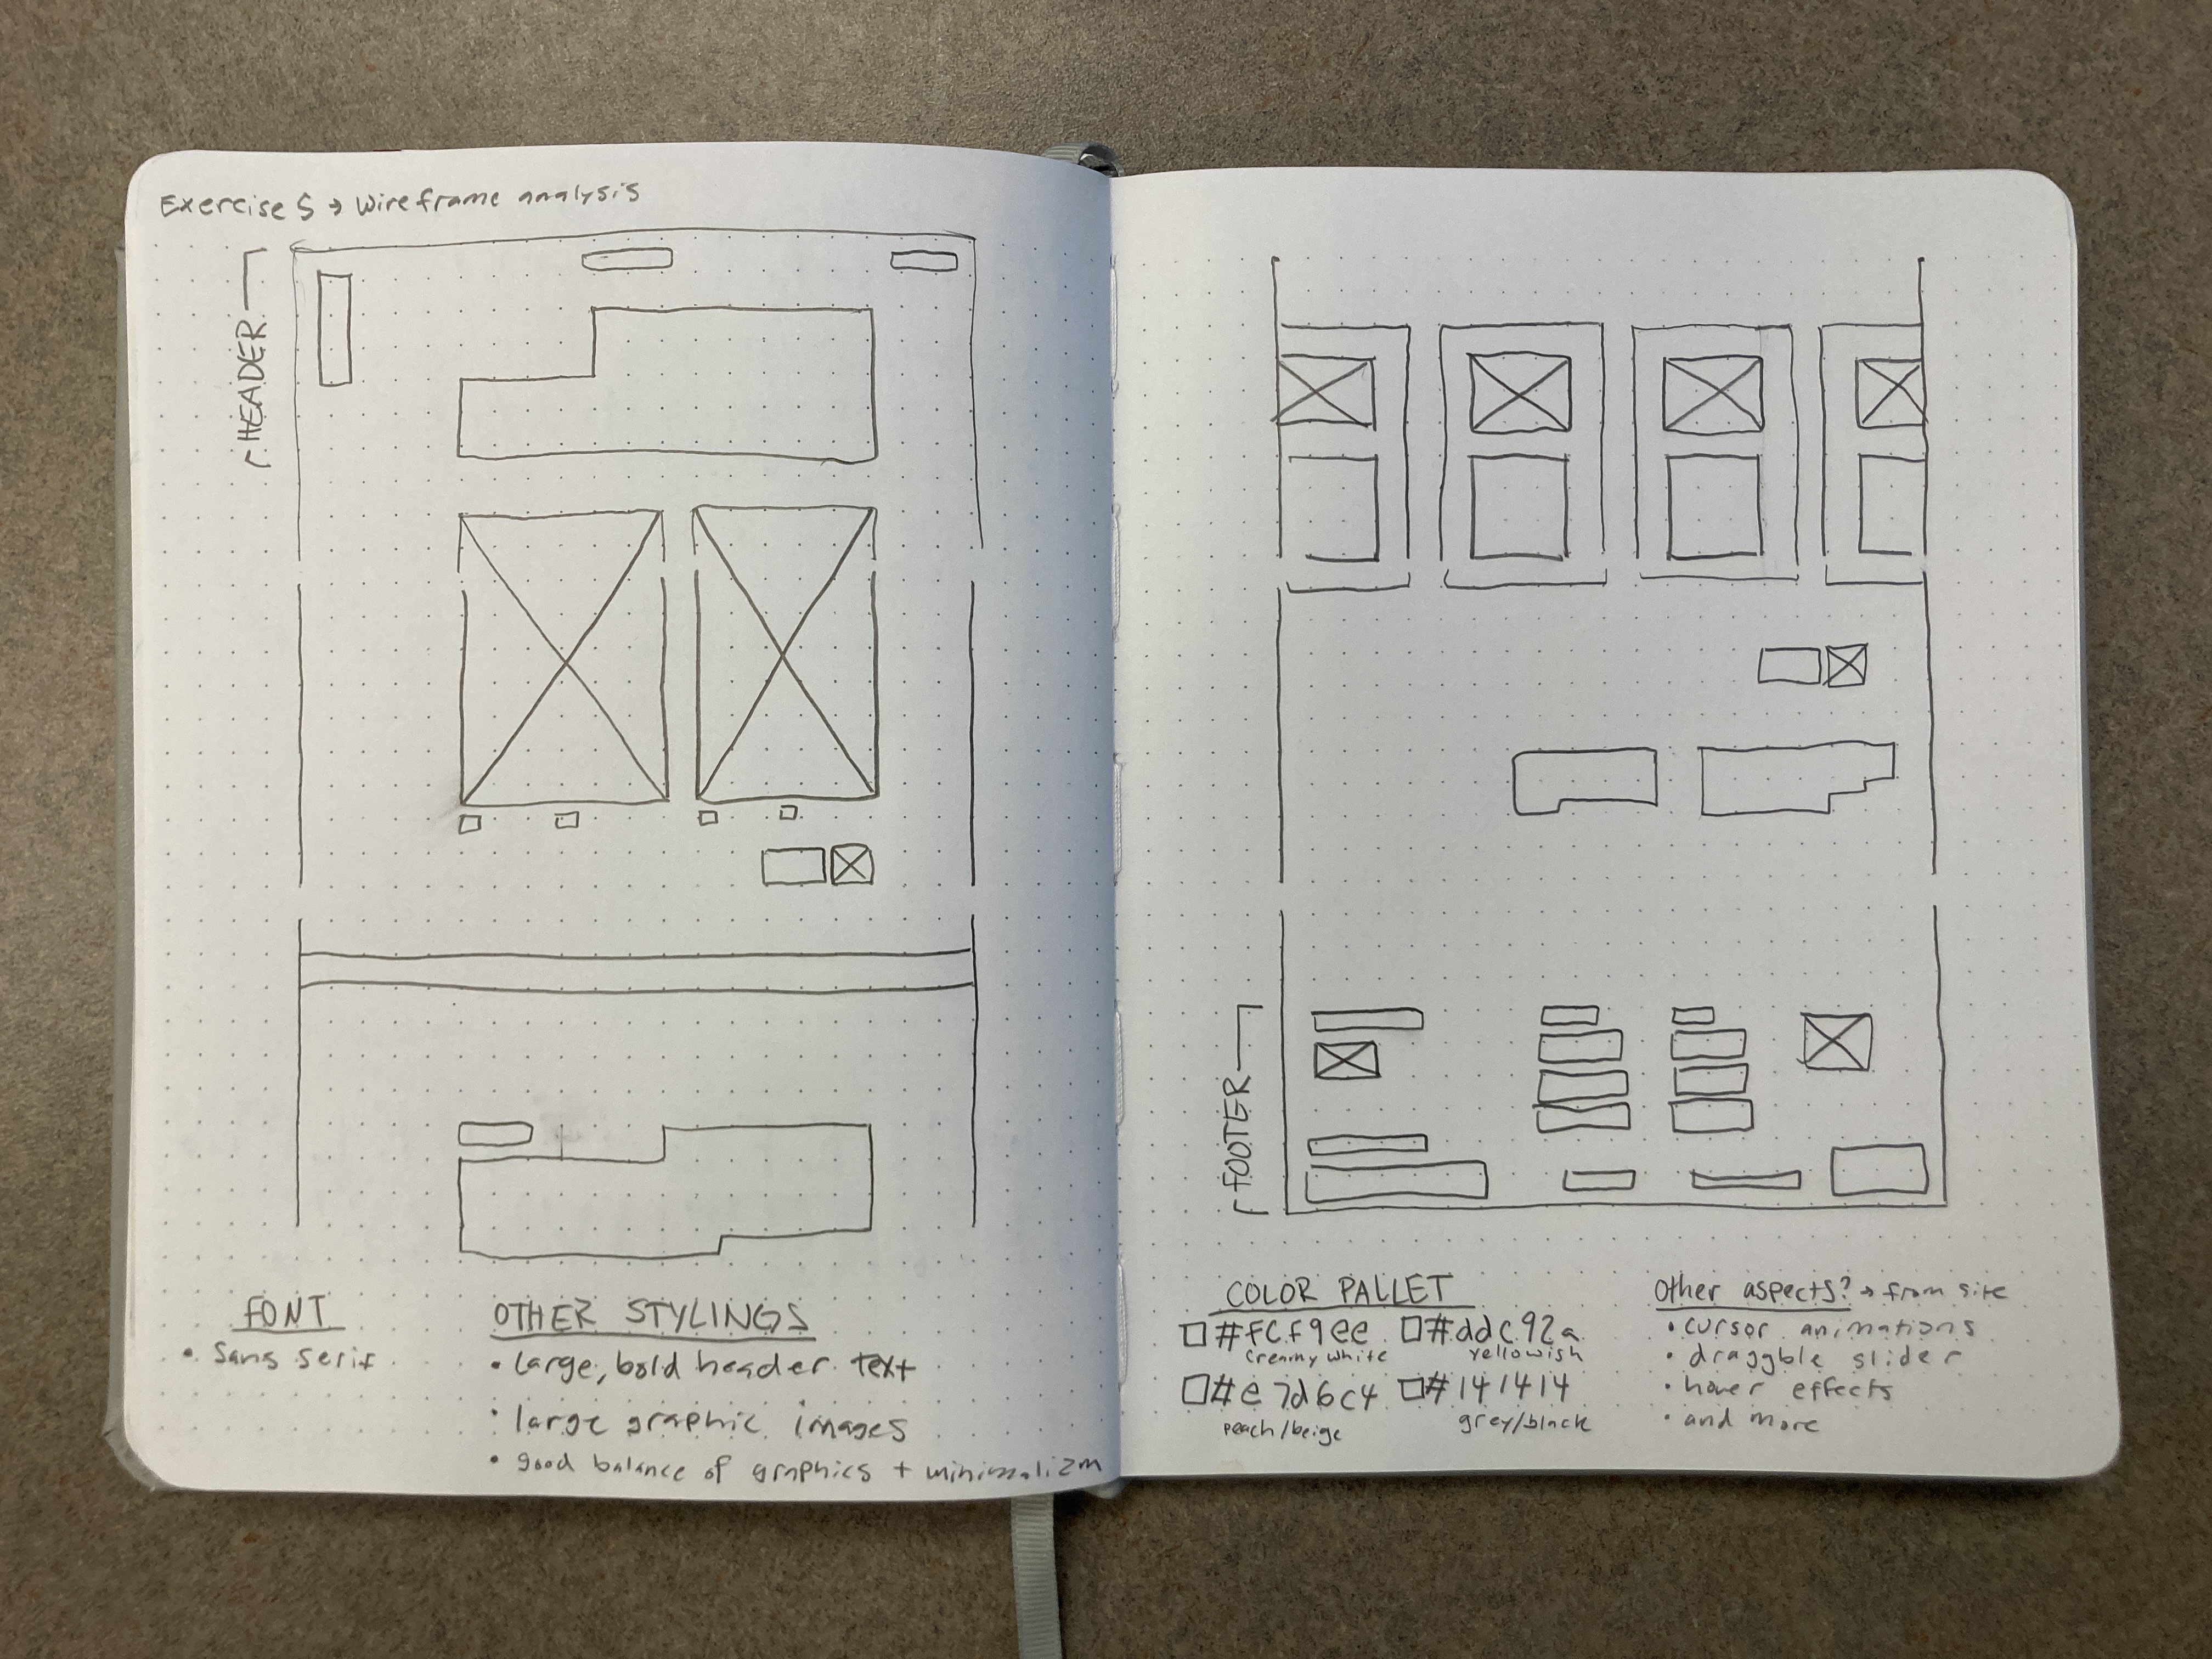 Exercise 5 → Wireframe analysis
HEADER
FONT
• Sans serif
OTHER STYLINGS
• large, bold header text
• large graphic images
• good balance of graphics + minimalizm
FOOTER
COLOR PALLET
#fcf9ee #ddc92a
creamy white yellowish
#e7d6c4 #141414
peach/beige grey/black
Other aspects? → from site
• cursor animations
• draggble slider
• hover effects
• and more